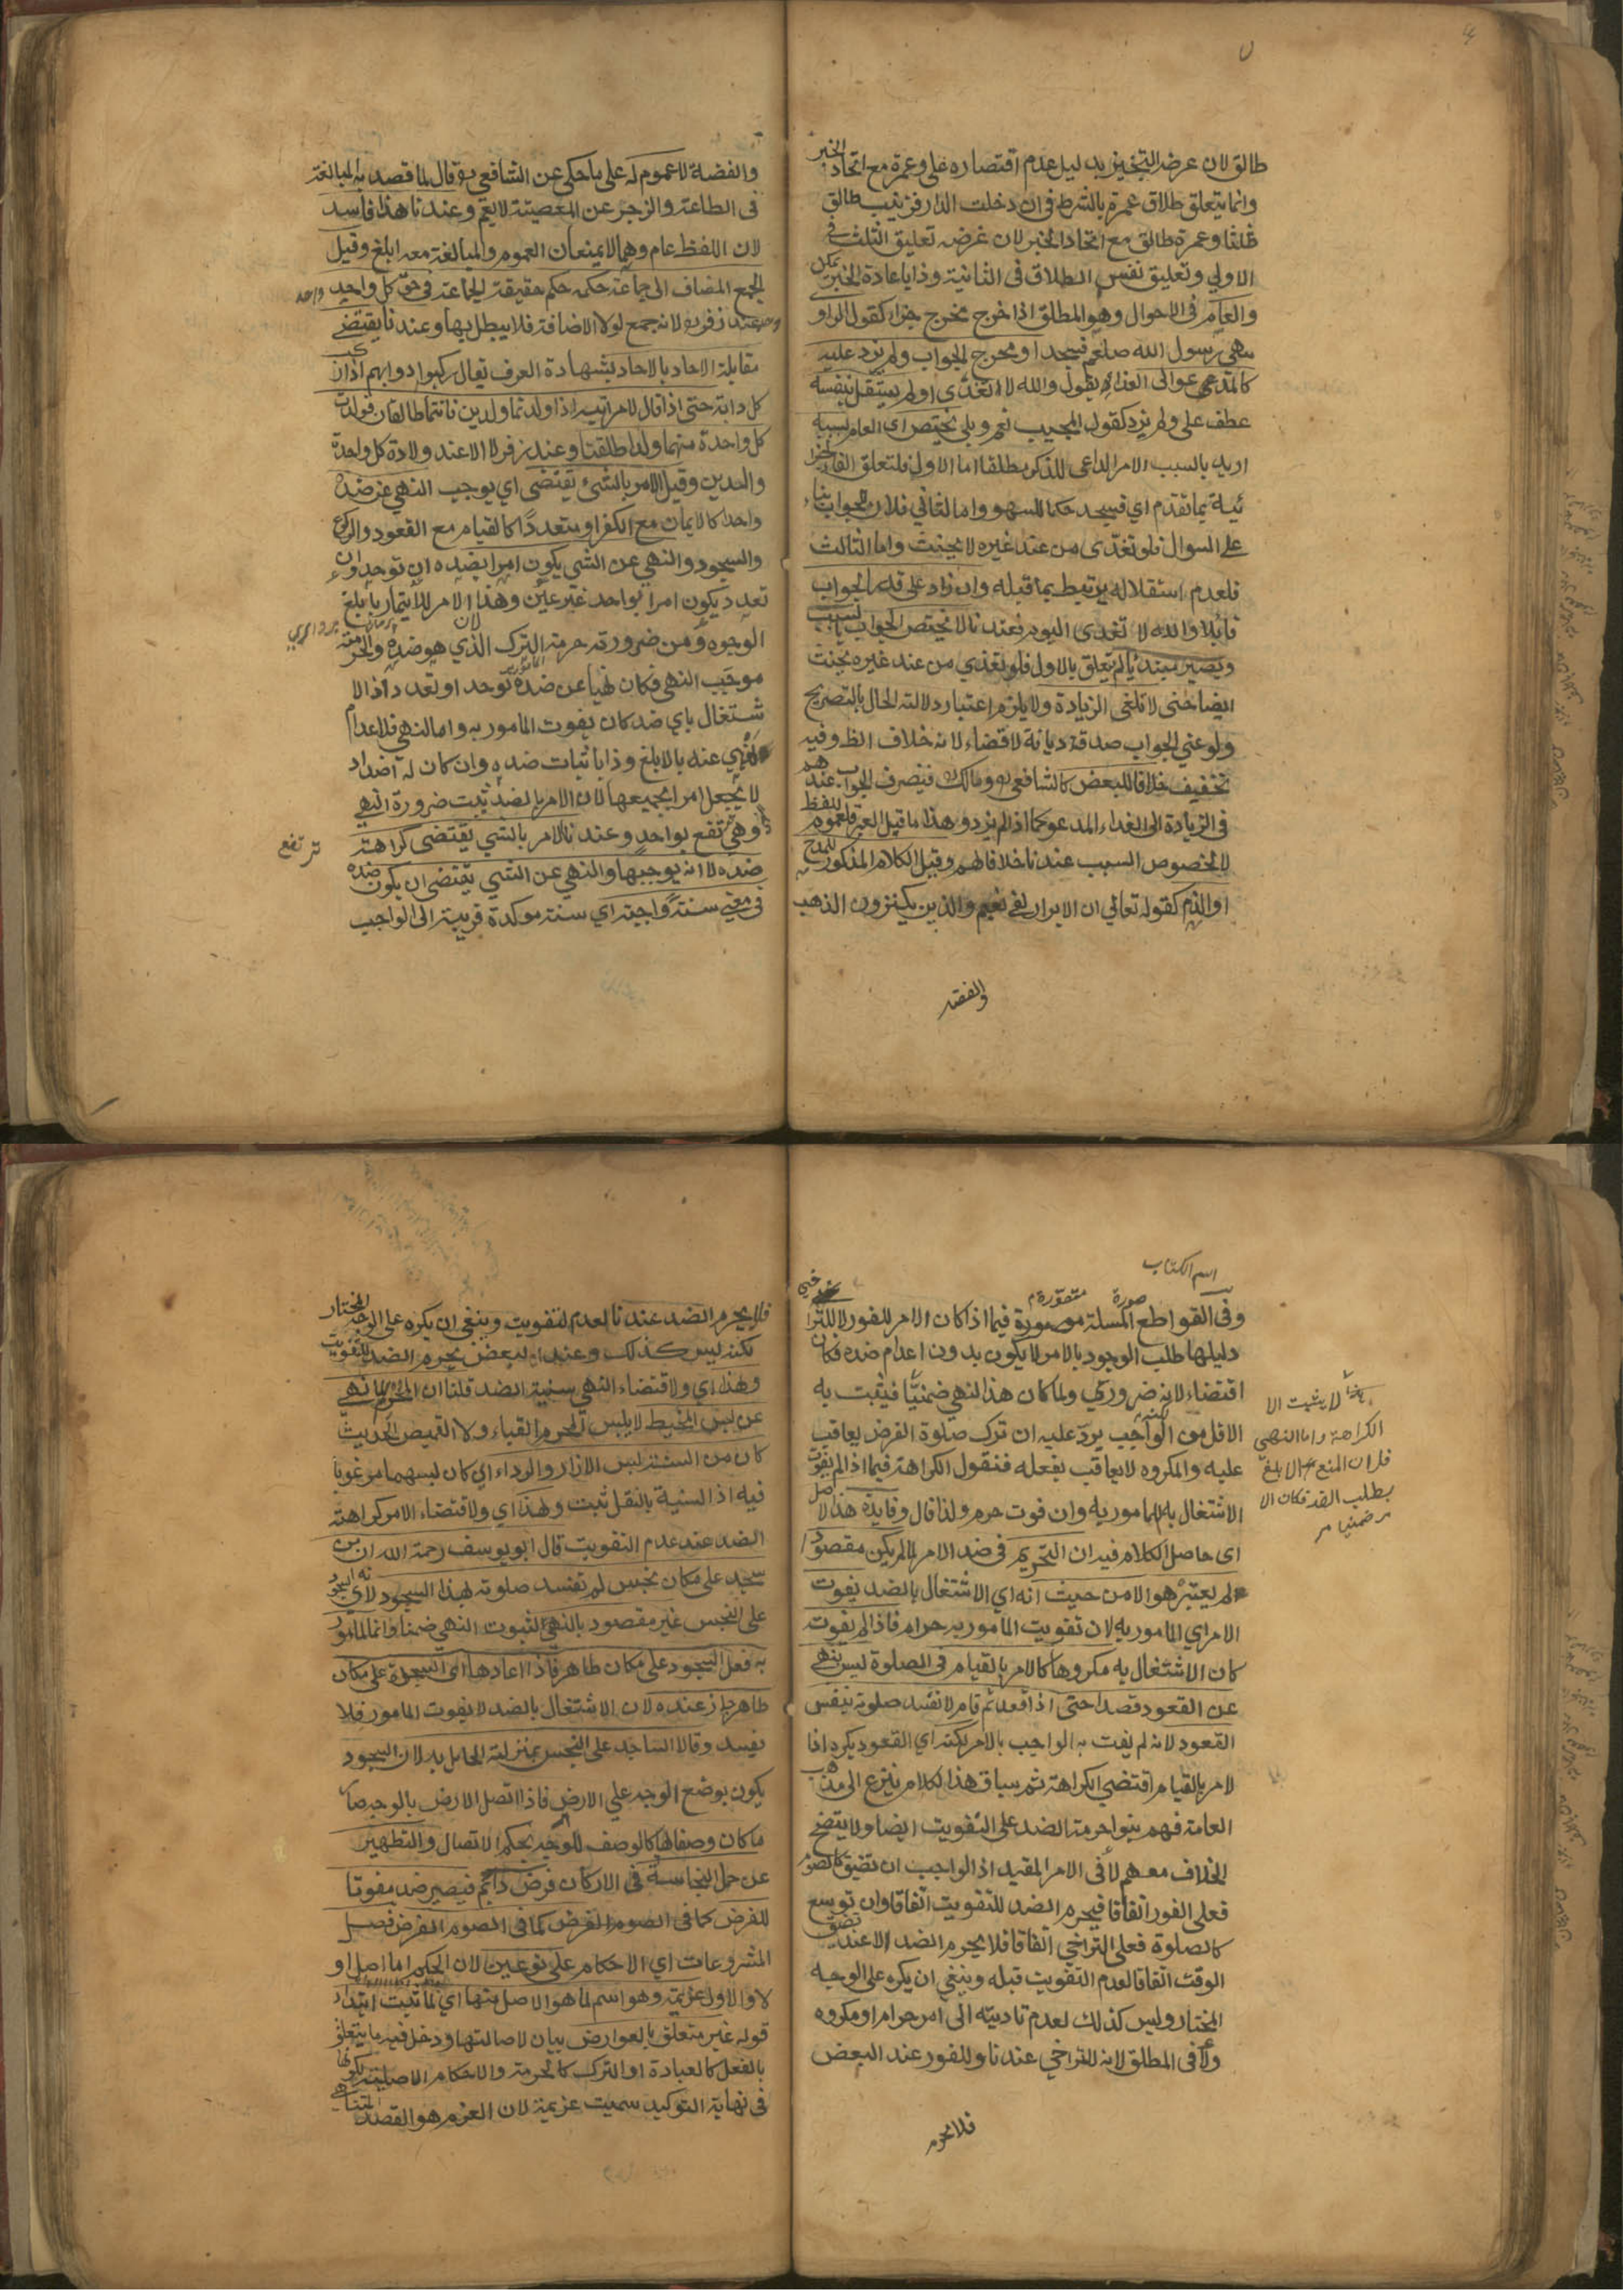 طالق لان غرضه التنجيز بدليل عدم اقتصاره على وعمرة مع اتحاد الخبر
وانما يتعلق طلاق عمرة بالشرط فى ان دخلت الدار فزينب طالق
ثلثا وعمرة طالق مع اتحاد الخبر لان غرضه تعليق الثلث فى
الاولي وتعليق نفس الطلاق فى الثانية وذا باعادة الخبر يمكن
والعام فى الاحوال وهو المطلق اذا خرج مخرج جزاء كقول الراو
سهى رسول الله صلعم فسجد او مخرج الجواب ولم يزد عليه
كالمدعي عوالى الغداء يقول والله لا اتغدى او لم يستقل بنفسه
عطف على ولم يزد كقول المجيب نعم وبلى يختص اى العام بسببه
اريد بالسبب الامر الداعى للذكر مطلقا اما الاول فلتعلق الفاء الجزا
ئية بما تقدم اي فسجد حكما للسهو واما الثاني فلان الجواب بناء
على السوال فلو تغدى من عند غيره لا يحنث واما الثالث
فلعدم استقلاله يرتبط بما قبله وان زاد على قدر الجواب
قائلا والله لا تغدى اليوم فعندنا لا يختص الجواب بالسبب
ويصير مبتديا لم يتعلق بالاول فلو تغدي من عند غيره يحنث
ايضا حتى لا تلغى الزيادة ولا يلزم اعتبار دلالة الحال بالتصريح
ولو عني الجواب صدق ديانة لا قضاء لانه خلاف الظ وفيه
تخفيف خلافا للبعض كالشافعي ومالك فينصرف الجواب عندهم
فى الزيادة الى الغداء المدعو كما اذا لم يزد وهذا ما قيل العبرة لعموم اللفظ
لا لخصوص السبب عندنا خلافا لهم وقيل الكلام المذكور للمدح
او الذم كقوله تعالي ان الابرار لفى نعيم والذين يكنزون الذهب
والفضة
والفضة لا عموم له على ما حكي عن الشافعي وقال لما قصد به المبالغة
فى الطاعة والزجر عن المعصية لا يعم وعندنا هذا فاسد
لان اللفظ عام وهما لا يمنعان العموم والمبالغة معه ابلغ وقيل
الجمع المضاف الى جماعة حكمه حكم حقيقة الجماعة فى حق كل واحد واحد
عند زفر لانه جمع لولا الاضافة فلا يبطل بها وعندنا يقتضے
مقابلة الاحاد بالاحاد بشهادة العرف يقال ركبوا دوابهم اذا ركب
كل دابته حتى اذا قال لامراتيه اذا ولدتما ولدين فانتما طالقان فولدت
كل واحدة منهما ولدا طلقتا وعند زفر لا الا عند ولادة كل واحدة
ولدين وقيل الامر بالشئ يقتضى اي يوجب النهي عن ضده
واحدا كالايمان مع الكفر او متعددا كالقيام مع القعود والركوع
والسجود والنهي عن الشي يكون امرا بضده ان توحد وان
تعدد يكون امرا بواحد غير عين وهذا لان الامر للايتمار بابلغ
الوجوه ومن ضرورته حرمة الترك الذي هو ضده والحرمة
موجب النهي فكان نهيا عن ضده توحد او تعدد اذ الا
شتغال باي ضد كان يفوت المامور به واما النهي فلاعدام
المنهي عنه بالابلغ وذا باثبات ضده وان كان له اضداد
لا يجعل امرا بجميعها لان الامر بالضد يثبت ضرورة النهي
وهي ترتفع بواحد وعندنا الامر بالشي يقتضى كراهة
ترتفع
ضده لا انه يوجبها والنهي عن الشي يقتضى ان يكون ضده
فى معنى سنة واجبة اي سنة موكدة قريبة الى الواجب
اسم الكتاب
وفى القواطع المسلة مصورة فيما اذا كان الامر للفور لا للتراخي
دليلها طلب الوجود بالامر لا يكون بدون اعدام ضده فكان
اقتضاء لانه ضروري ولما كان هذا النهي ضمنيا فيثبت به
الاقل من الواجب يرد عليه ان ترك صلوة الفرض يعاقب
عليه والمكروه لا يعاقب بفعله فنقول الكراهة فيما اذا لم يفوت
الاشتغال به المامور به وان فوت حرم ولذا قال وفايدة هذا الاصل
اى حاصل الكلام فيه ان التحريم فى ضد الامر لما لم يكن مقصودا
لم يعتبر هو الا من حيث انه اي الاشتغال بالضد يفوت
الامر اي المامور به لان تفويت المامور به حرام فاذا لم يفوت
كان الاشتغال به مكروها كالامر بالقيام فى الصلوة ليس بنهي
عن القعود قصدا حتى اذا قعد ثم قام لا تفسد صلوته بنفس
القعود لانه لم يفت به الواجب بالامر لكنه اي القعود يكره اذا
لامر بالقيام اقتضى الكراهة ثم سياق هذا الكلام ينزع الى مذهب
العامة فهم بنوا حرمة الضد على التفويت ايضا ولا يتضح
الخلاف معهم لا فى الامر المقيد اذ الواجب ان تضيق كالصوم
فعلى الفور اتفاقا فيحرم الضد للتفويت اتفاقا وان توسع
كالصلوة فعلى التراخي اتفاقا فلا يحرم الضد الا عند تضيق
الوقت اتفاقا لعدم التفويت قبله وينبغي ان يكره على الوجه
المختار وليس كذلك لعدم تاديته الى امر حرام او مكروه
ولا فى المطلق لانه للتراخي عندنا وللفور عند البعض
فلا يحرم
لا يثبت الا
الكراهة واما النهي
فلان المنع بالابلغ
بطلب الضد فكان الا
مر ضمنيا
فلا يحرم الضد عندنا لعدم التفويت وينبغي ان يكره على الوجه المختار
لكنه ليس كذلك وعند البعض يحرم الضد للتفويت
ولهذا اي ولاقتضاء النهي سنية الضد قلنا ان المحرم لما نهي
عن لبس المخيط لا يلبس المحرم القباء ولا القميص الحديث
كان من السنة لبس الازار والرداء اي كان لبسهما مرغوبا
فيه اذ السنية بالنقل ثبت ولهذا اي ولاقتضاء الامر كراهة
الضد عند عدم التفويت قال ابو يوسف رحمة الله ان من
سجد على مكان نجس لم تفسد صلوته بهذا السجود لانه اي السجود
على النجس غير مقصود بالنهي لثبوت النهي ضمنا وانما المامور
به فعل السجود على مكان طاهر فاذا اعادها اي السجدة على مكان
طاهر جاز عنده لان الاشتغال بالضد لا يفوت المامور فلا
يفسد وقالا الساجد على النجس بمنزلة الحامل به لان السجود
يكون بوضع الوجه علي الارض فاذا اتصل الارض بالوجه صار
ما كان وصفا لها كالوصف للوجه بحكم الاتصال والتطهير
عن حمل النجاسة فى الاركان فرض دائم فيصير ضده مفوتا
للفرض كما فى الصوم الفرض كما فى الصوم الفرض فصل
المشروعات اي الاحكام على نوعين لان الحكم اما اصل او
لا والاول عزيمة وهو اسم لما هو الاصل منها اي لما ثبت ابتداء
قوله غير متعلق بالعوارض بيان لاصالتها ودخل فيه ما يتعلق
بالفعل كالعبادة او الترك كالحرمة والاحكام الاصلية لكونها
فى نهاية التوكيد سميت عزيمة لان العزم هو القصد المتناهي